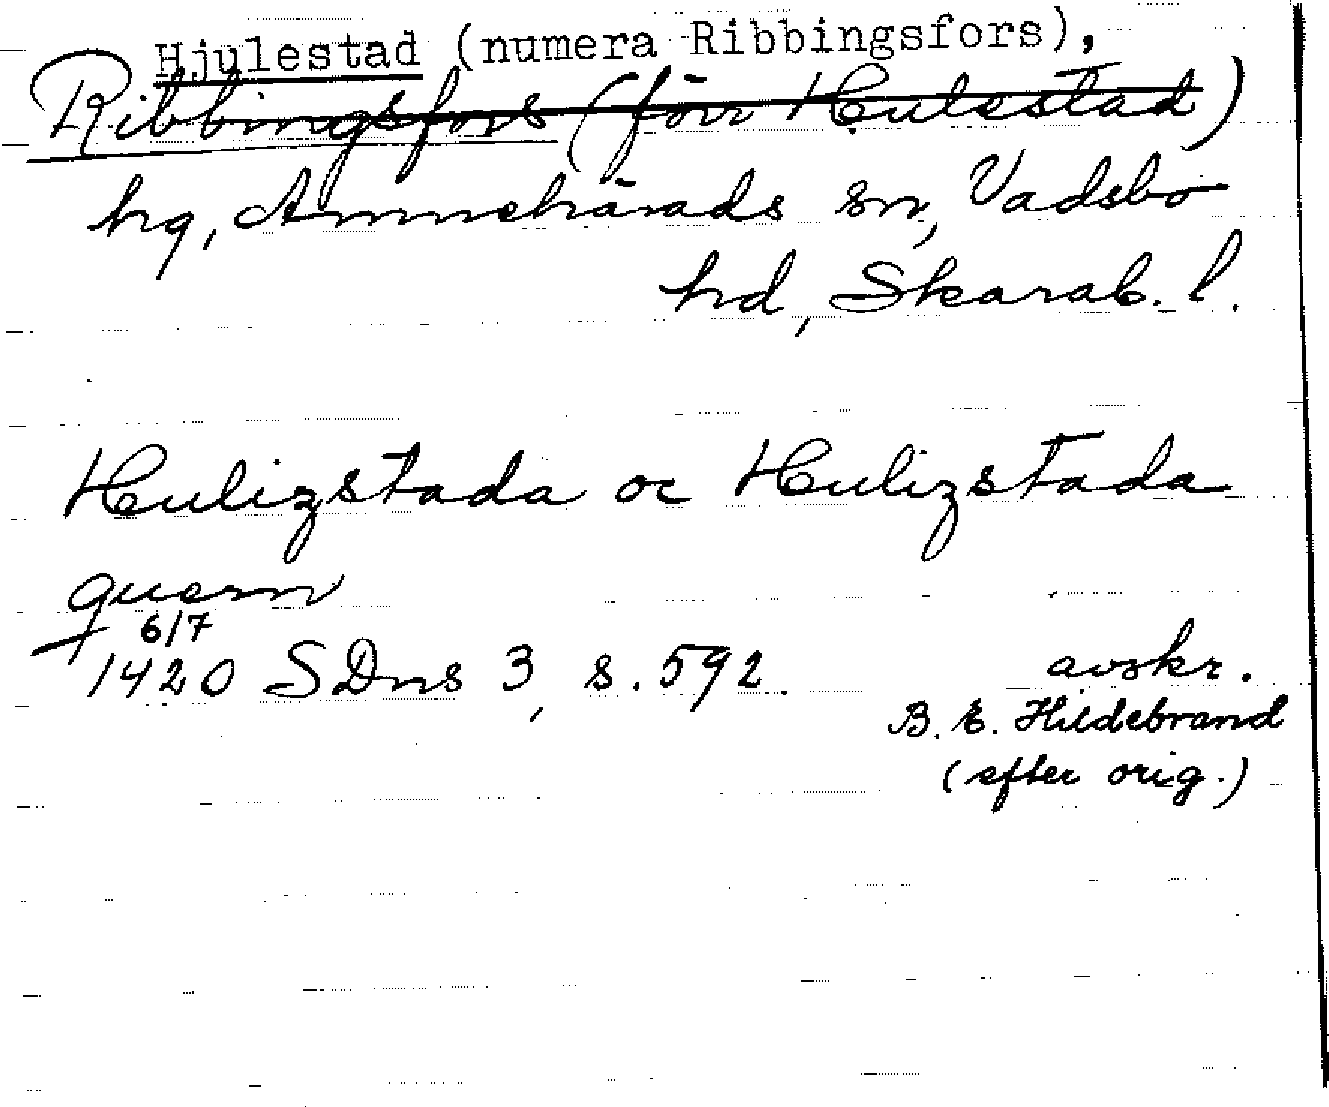 Hjulestad (numera Ribbingsfors),
Ribbingsfors (förr Hulestad)
hg, Amnehärads sn, Vadsbo
hd, Skarab. l.
Hulizstada oc Hulizstada
quern
6/7
1420 SDns 3, s. 592. avskr.
B. E. Hildebrand
(efter orig.)